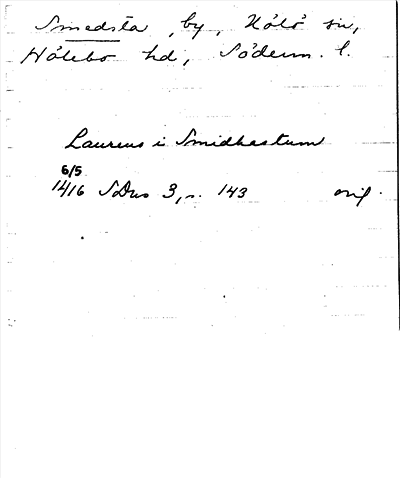 Smedsta, by, Hölö sn,
Hölebo hd, Söderm. l.
Laurens i Smidhestum
6/5
1416 SDns 3, s. 143 orig.